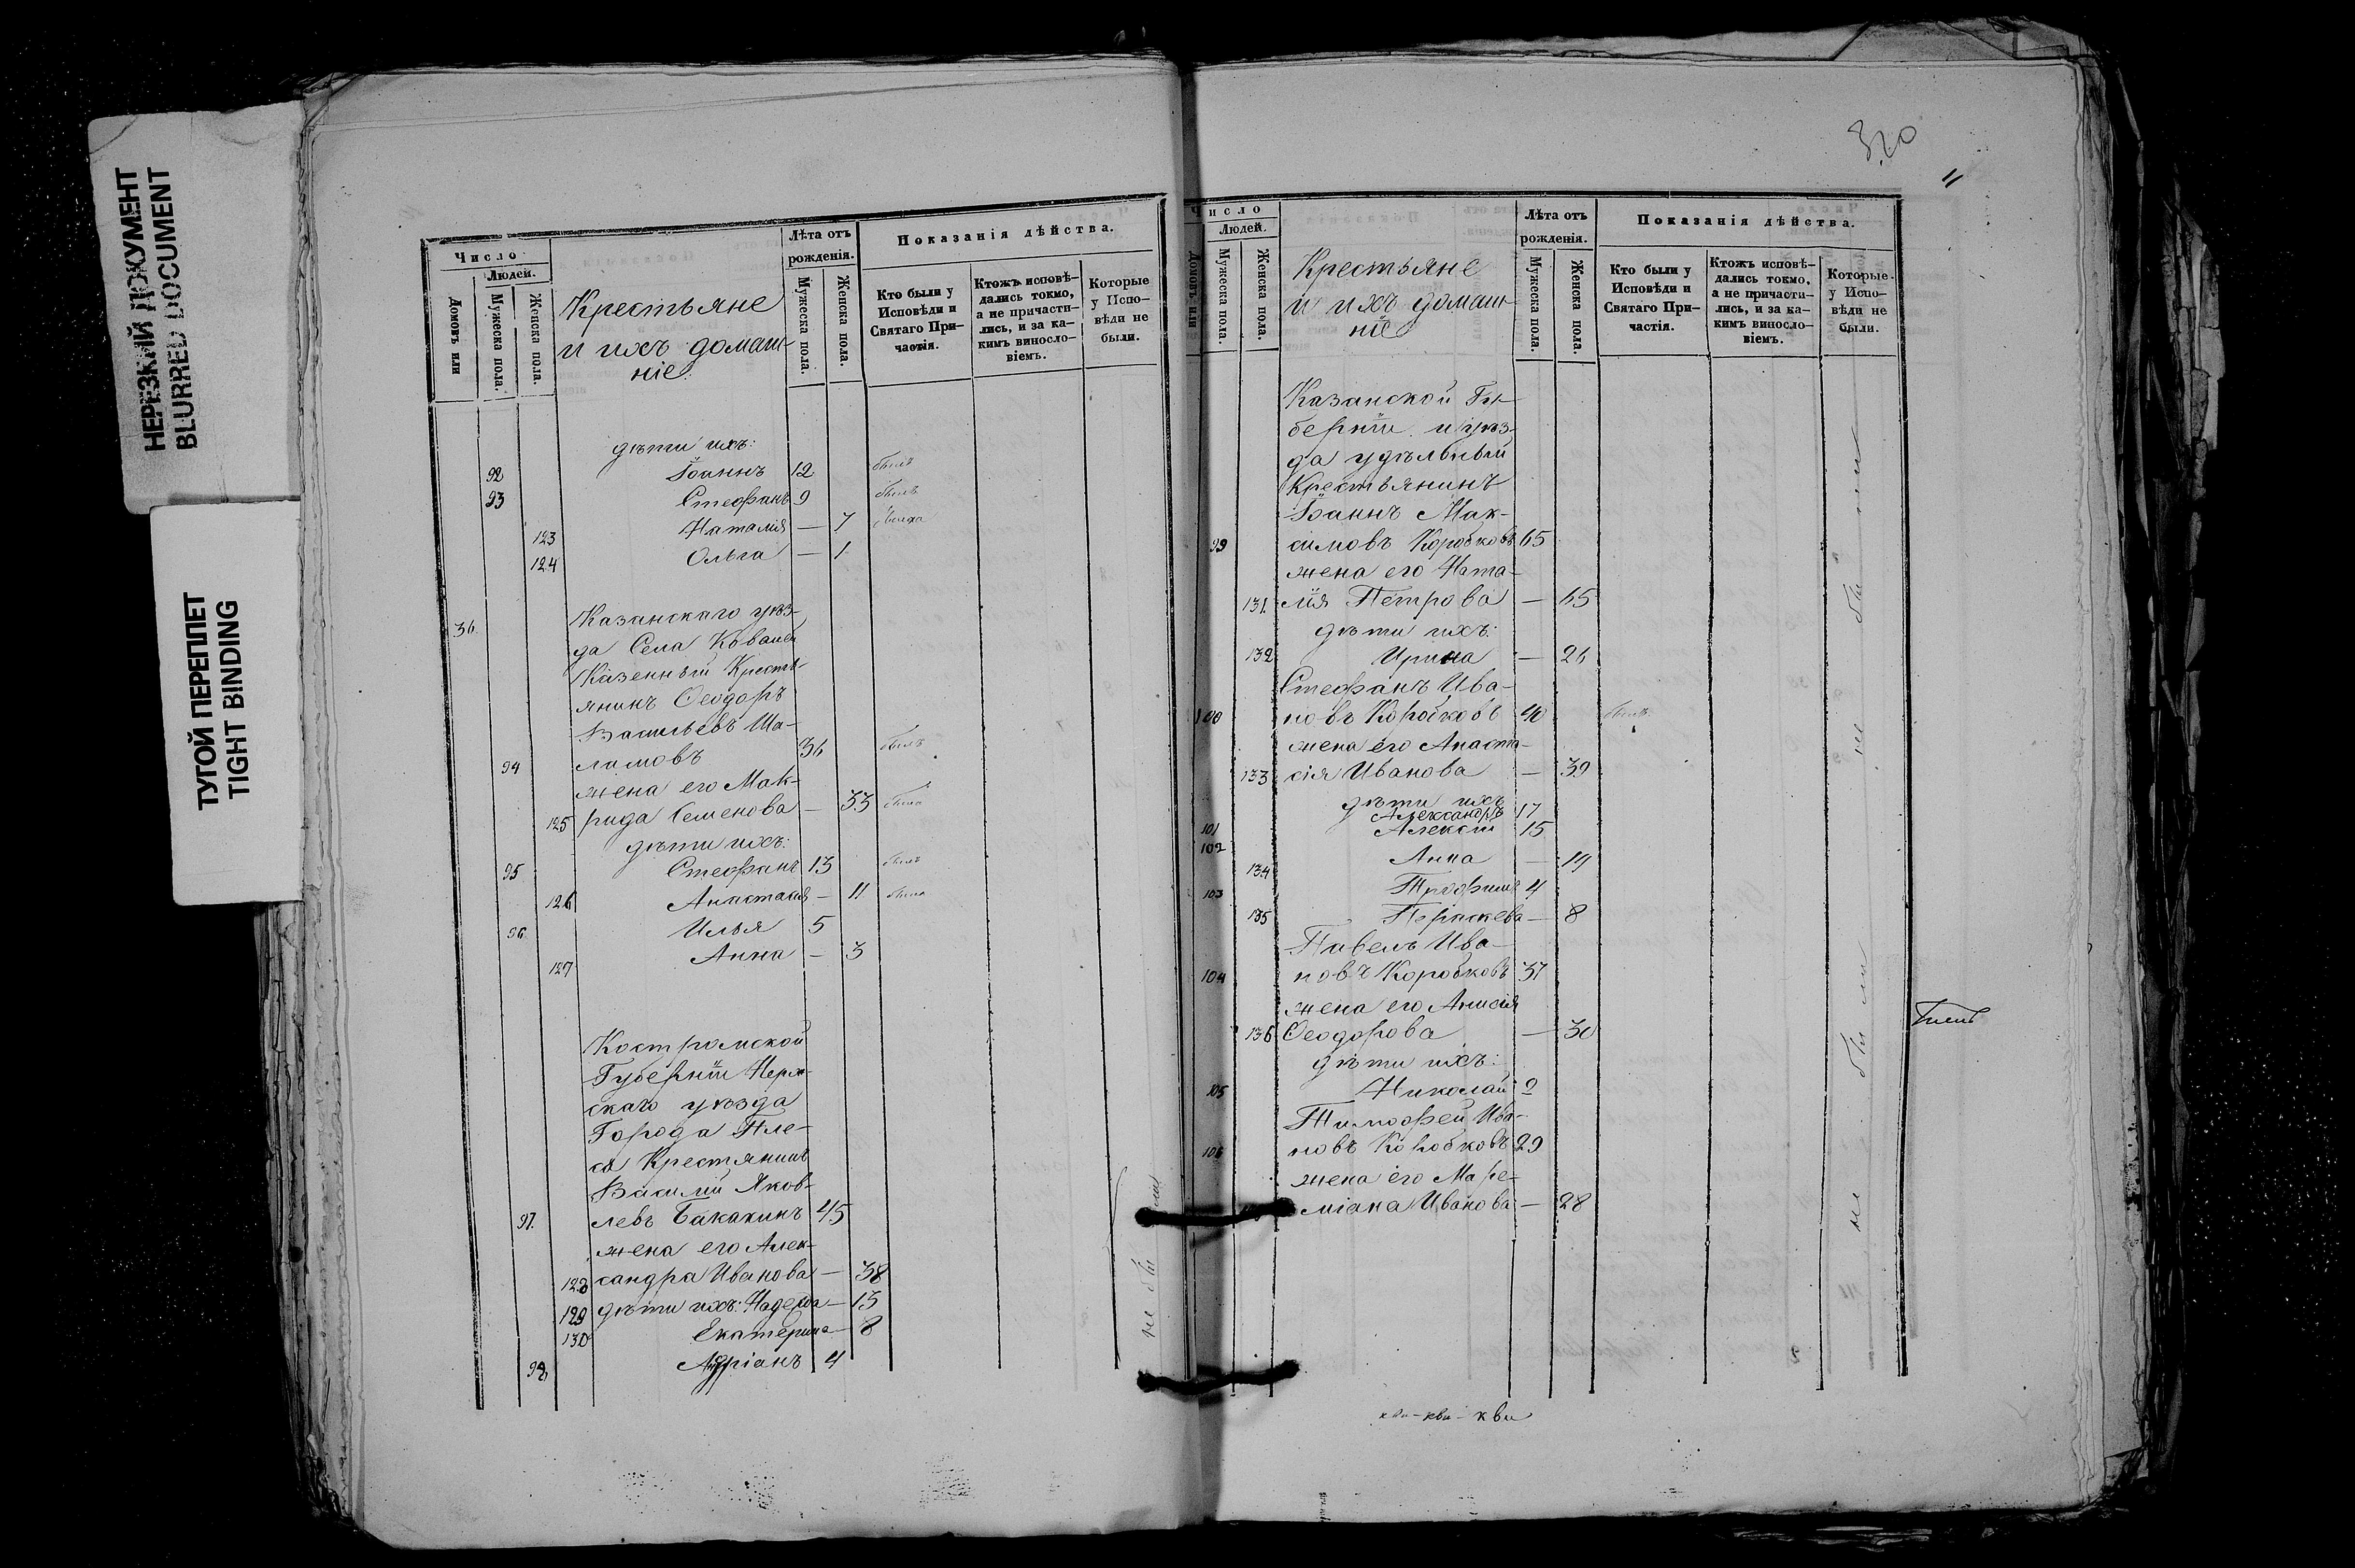 НЕРЕЗКИЙ ДОКУМЕНТ
BLURRED DOCUMENT
ТУГОЙ ПЕРЕПЛЕТ
TIGHT BINDING
Число
Людей.
Домовъ или
Мужеска пола.
Женска пола.
Крестьяне
и ихъ домаш-
ніе.
Лѣта отъ
рожденія.
Мужеска пола.
Женска пола.
Показанія дѣйства.
Кто были у
Исповѣди и
Святаго При-
частія.
Ктожъ исповѣ-
дались токмо,
а не причасти-
лись, и за ка-
кимъ виносло-
віемъ.
Которые
у Испо-
вѣди не
были.
дѣти ихъ:
92 Іоаннъ 12 былъ
93 Стефанъ 9 былъ
123 Наталія — 7
124 Ольга — 1
36. Казанскаго уѣз-
да Села
Казенный Кресть-
янинъ Ѳеодоръ
Васильевъ Ша-
94 ламовъ 36 былъ
жена его Мак-
125 рида Семенова — 33 была
дѣти ихъ:
95 Стефанъ 13 былъ
126 Анастасія — 11 была
96 Илья 5
127 Анна — 3
Костромской
Губерніи Нерх-
скаго уѣзда
Города Пле-
са Крестянинъ
Василій Яков-
97. левъ Бакакинъ 45
жена его Алек-
128 сандра Иванова — 38
129 дѣти ихъ: Надежда — 13
130 Екатерина — 8
98 Адріанъ 4
не были
320
11
Число
Людей.
Домовъ или
Мужеска пола.
Женска пола.
Крестьяне
и ихъ домаш-
ніе
Лѣта отъ
рожденія.
Мужеска пола.
Женска пола.
Показанія дѣйства.
Кто были у
Исповѣди и
Святаго При-
частія.
Ктожъ исповѣ-
дались токмо,
а не причасти-
лись, и за ка-
кимъ виносло-
віемъ.
Которые
у Испо-
вѣди не
были.
Казанской Гу-
берніи и уѣз-
да удѣльный
Крестьянинъ
Іоаннъ Мак-
99 симовъ Коробковъ 65
жена его Ната-
131. лія Петрова — 65
дѣти ихъ:
132 Ирина — 26
Стефанъ Ива-
100 новъ Коробковъ 40 былъ
жена его Анаста-
133 сія Иванова — 39
дѣти ихъ
101 Александръ 17
102 Алексій 15
134 Анна — 19
103 Трофимъ 4
135 Параскева — 8
Павелъ Ива-
104 новъ Коробковъ 37
жена его Анисія
136 Ѳеодорова — 30
дѣти ихъ:
105 Николай 2
Тимофей Ива-
106 новъ Коробковъ 29
жена его Маре-
міана Иванова — 28
не были
не были
кви-кви-кви